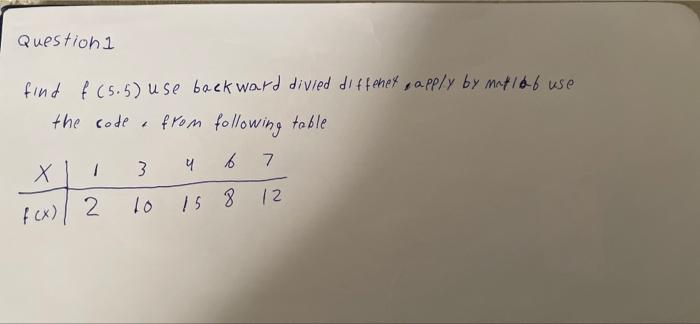 Question1
find f (5.5) use backward divied diffenet, apply by matlab use
the code . from following table
X 1 3 4 6 7
f(x) 2 10 15 8 12